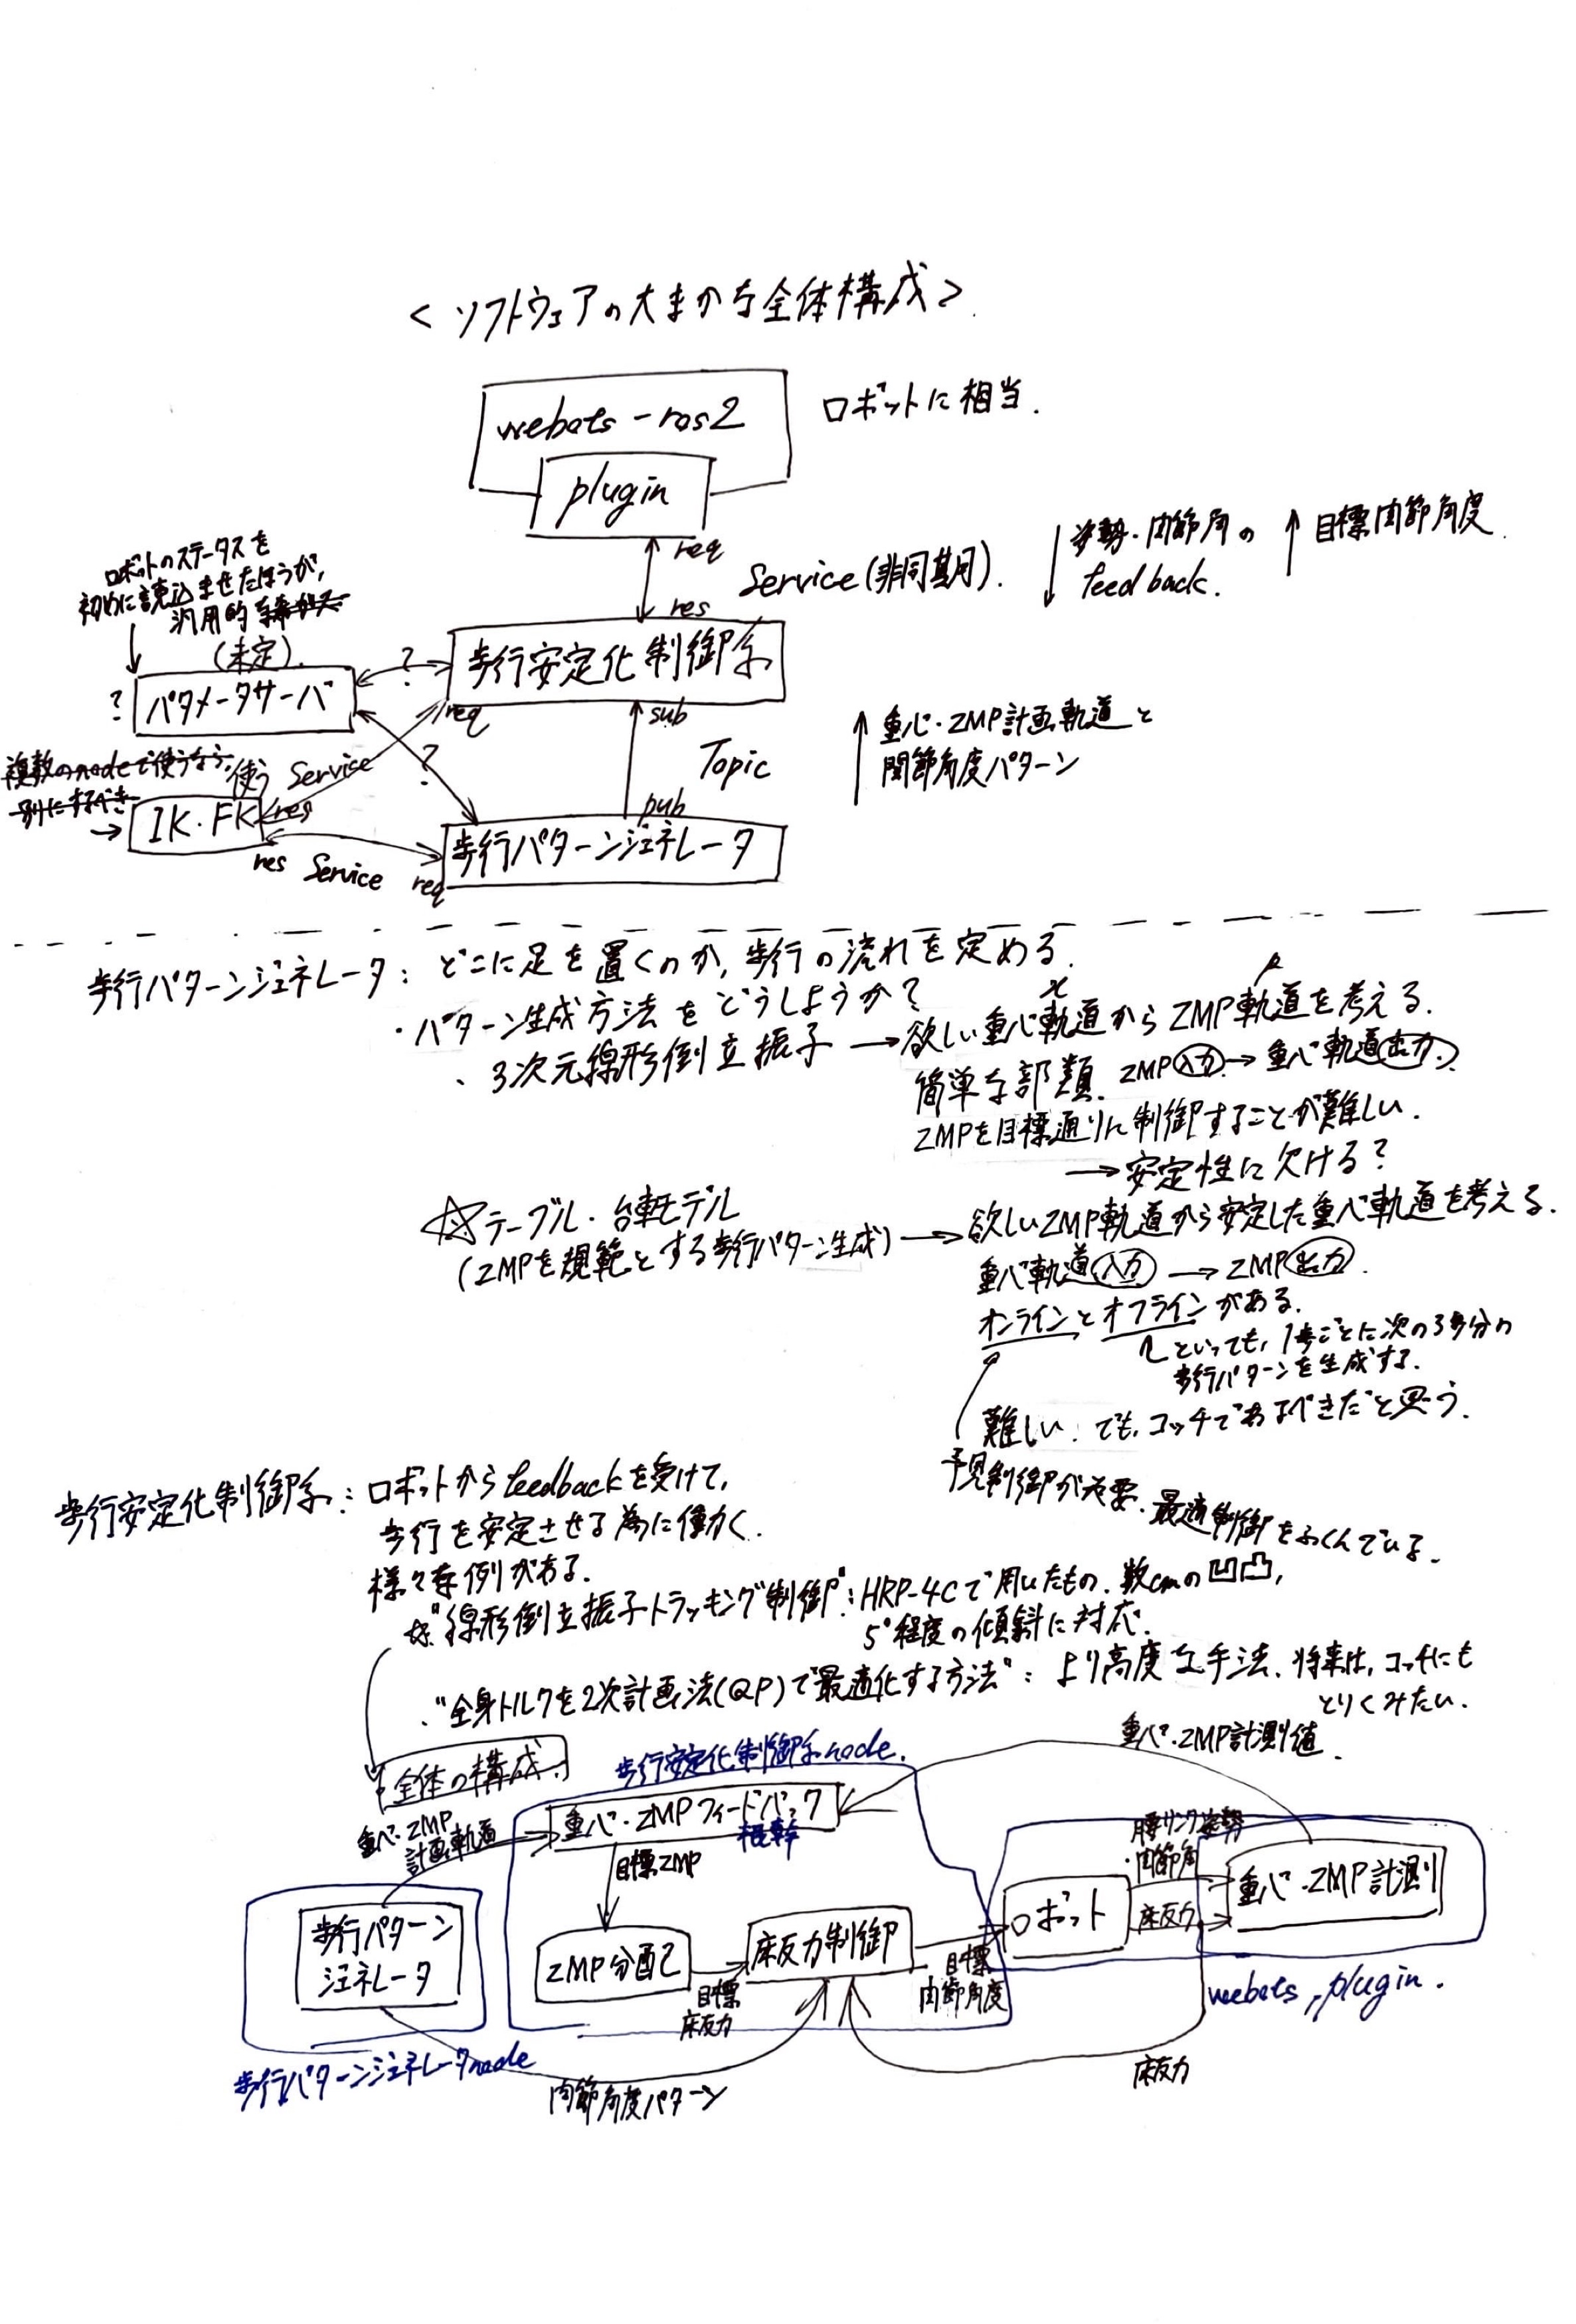 <ソフトウェアの大まかな全体構成>
webots-ros2
ロボットに相当.
plugin
req
Service(非同期).
res
姿勢・関節角の
feedback.
目標関節角度.
ロボットのステータスを
初めに読込ませたほうが,
汎用的
(未定).
?
パラメータサーバ
?
歩行安定化制御系
req
sub
Topic
pub
重心・ZMP計画軌道と
関節角度パターン
複数のnodeで使うなら,
別にするべき
使う Service
?
→ IK・FK
res
res Service req
歩行パターンジェネレータ
歩行パターンジェネレータ: どこに足を置くのか, 歩行の流れを定める.
・パターン生成方法をどうしようか?
、3次元線形倒立振子 → 欲しい重心軌道からZMP軌道を考える.
x
p
簡単な部類. ZMP入力→重心軌道出力.
ZMPを目標通りに制御することが難しい.
→安定性に欠ける?
☆テーブル・台車モデル
(ZMPを規範とする歩行パターン生成) → 欲しいZMP軌道から安定した重心軌道を考える.
重心軌道入力 → ZMP出力.
オンラインとオフラインがある.
といっても, 1歩ごとに次の3歩分の
歩行パターンを生成する.
難しい. でも, コッチであるべきだと思う.
予見制御が必要. 最適制御をふくんでいる.
歩行安定化制御系: ロボットからfeedbackを受けて,
歩行を安定させる為に働く.
様々な例がある.
"線形倒立振子トラッキング制御": HRP-4Cで用いたもの. 数cmの凹凸,
5°程度の傾斜に対応.
・"全身トルクを2次計画法(QP)で最適化する方法": より高度な手法. 将来は, コッチにも
とりくみたい.
全体の構成.
歩行安定化制御系node.
重心・ZMP計測値.
重心・ZMP
計画軌道
重心・ZMPフィードバック
根幹
目標ZMP
腰リンク姿勢
・関節角
歩行パターン
ジェネレータ
ZMP分配
目標
床反力
床反力制御
目標
関節角度
ロボット
床反力
重心・ZMP計測
webots, plugin.
歩行パターンジェネレータnode
関節角度パターン
床反力